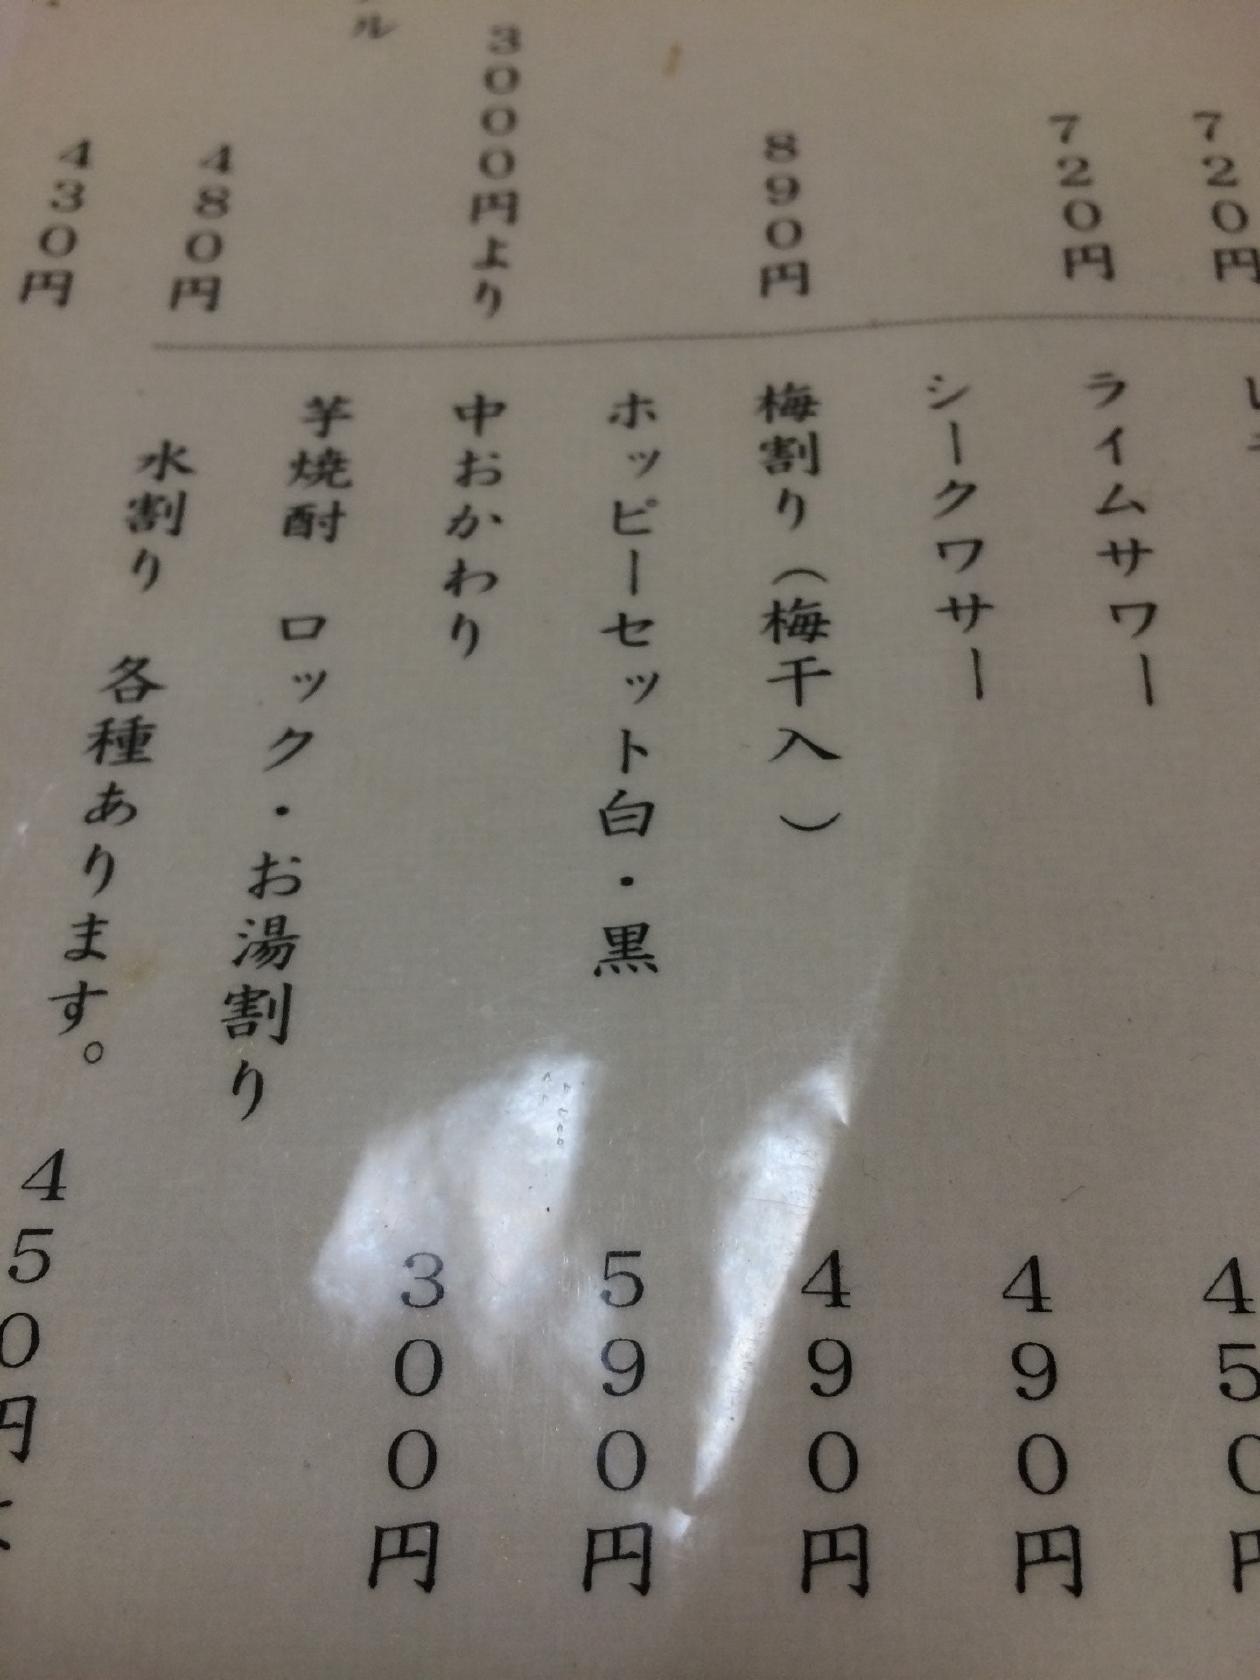 720円
720円
890円
3000円より
ル
480円
430円
ライムサワー 450円
シークワサー 490円
梅割り（梅干入） 490円
ホッピーセット白・黒 590円
中おかわり 300円
芋焼酎 ロック・お湯割り
水割り 各種あります。 450円